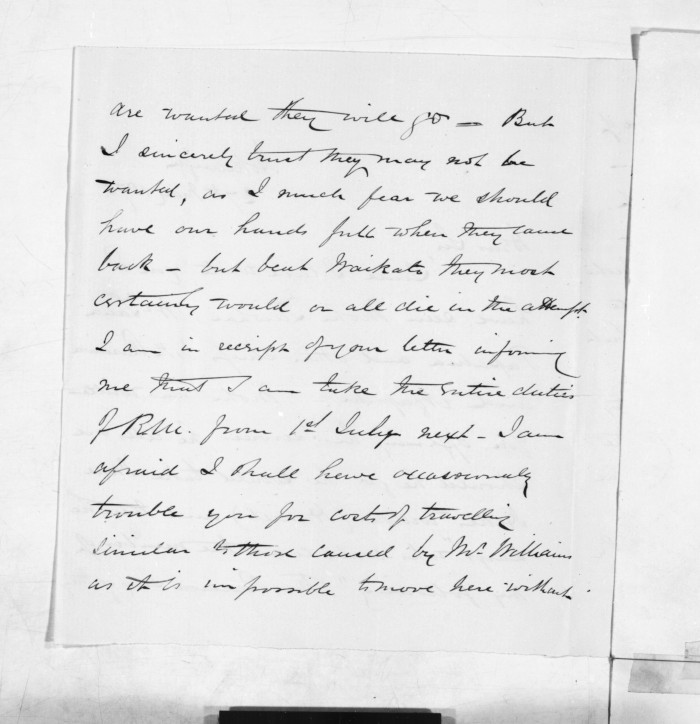 are wanted they will go — But
I sincerely trust they may not be
wanted, as I much fear we should
have our hands full when they came
back — but beat Waikato they most
certainly would or all die in the attempt.
I am in receipt of your letter informing
me that I am take the entire duties
of R.M. from 1st July next — I am
afraid I shall have occassionaly
trouble you for costs of travelling
similar to those caused by Mr. Williams
as it is impossible to move here without